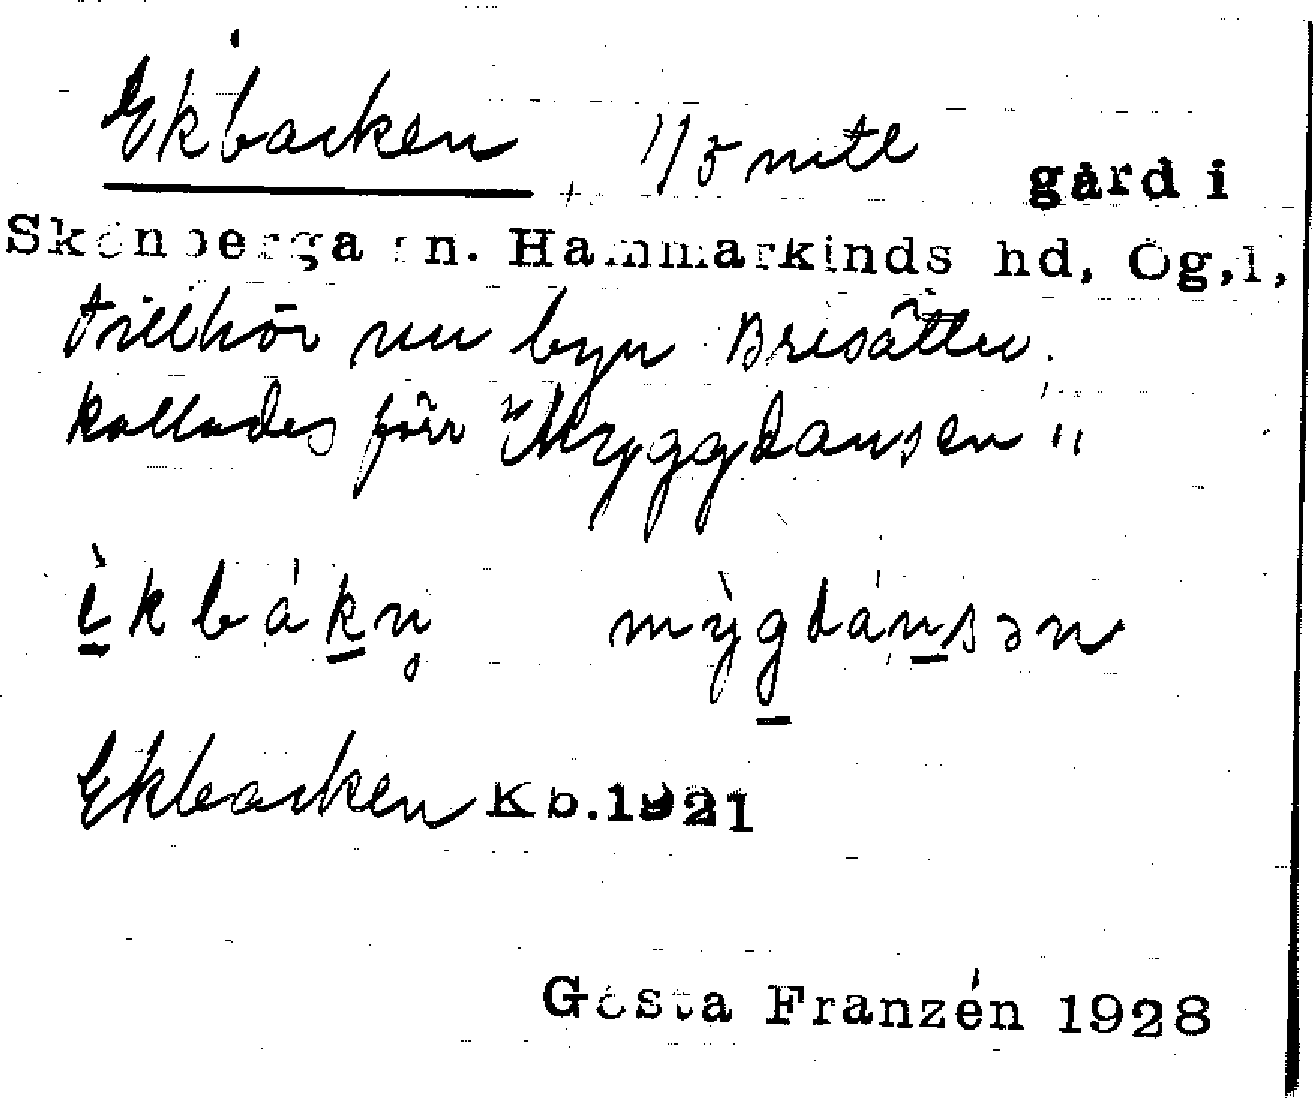 Ekbacken 1/8 mtl gård i
Skönberga sn. Hammarkinds hd, Ög,l,
tillhör nu byn Bresätter.
kallades förr "Myggdansen"
ìkbákn̥ mỳgdánsən
Ekbacken Kb.1921
Gösta Franzén 1928